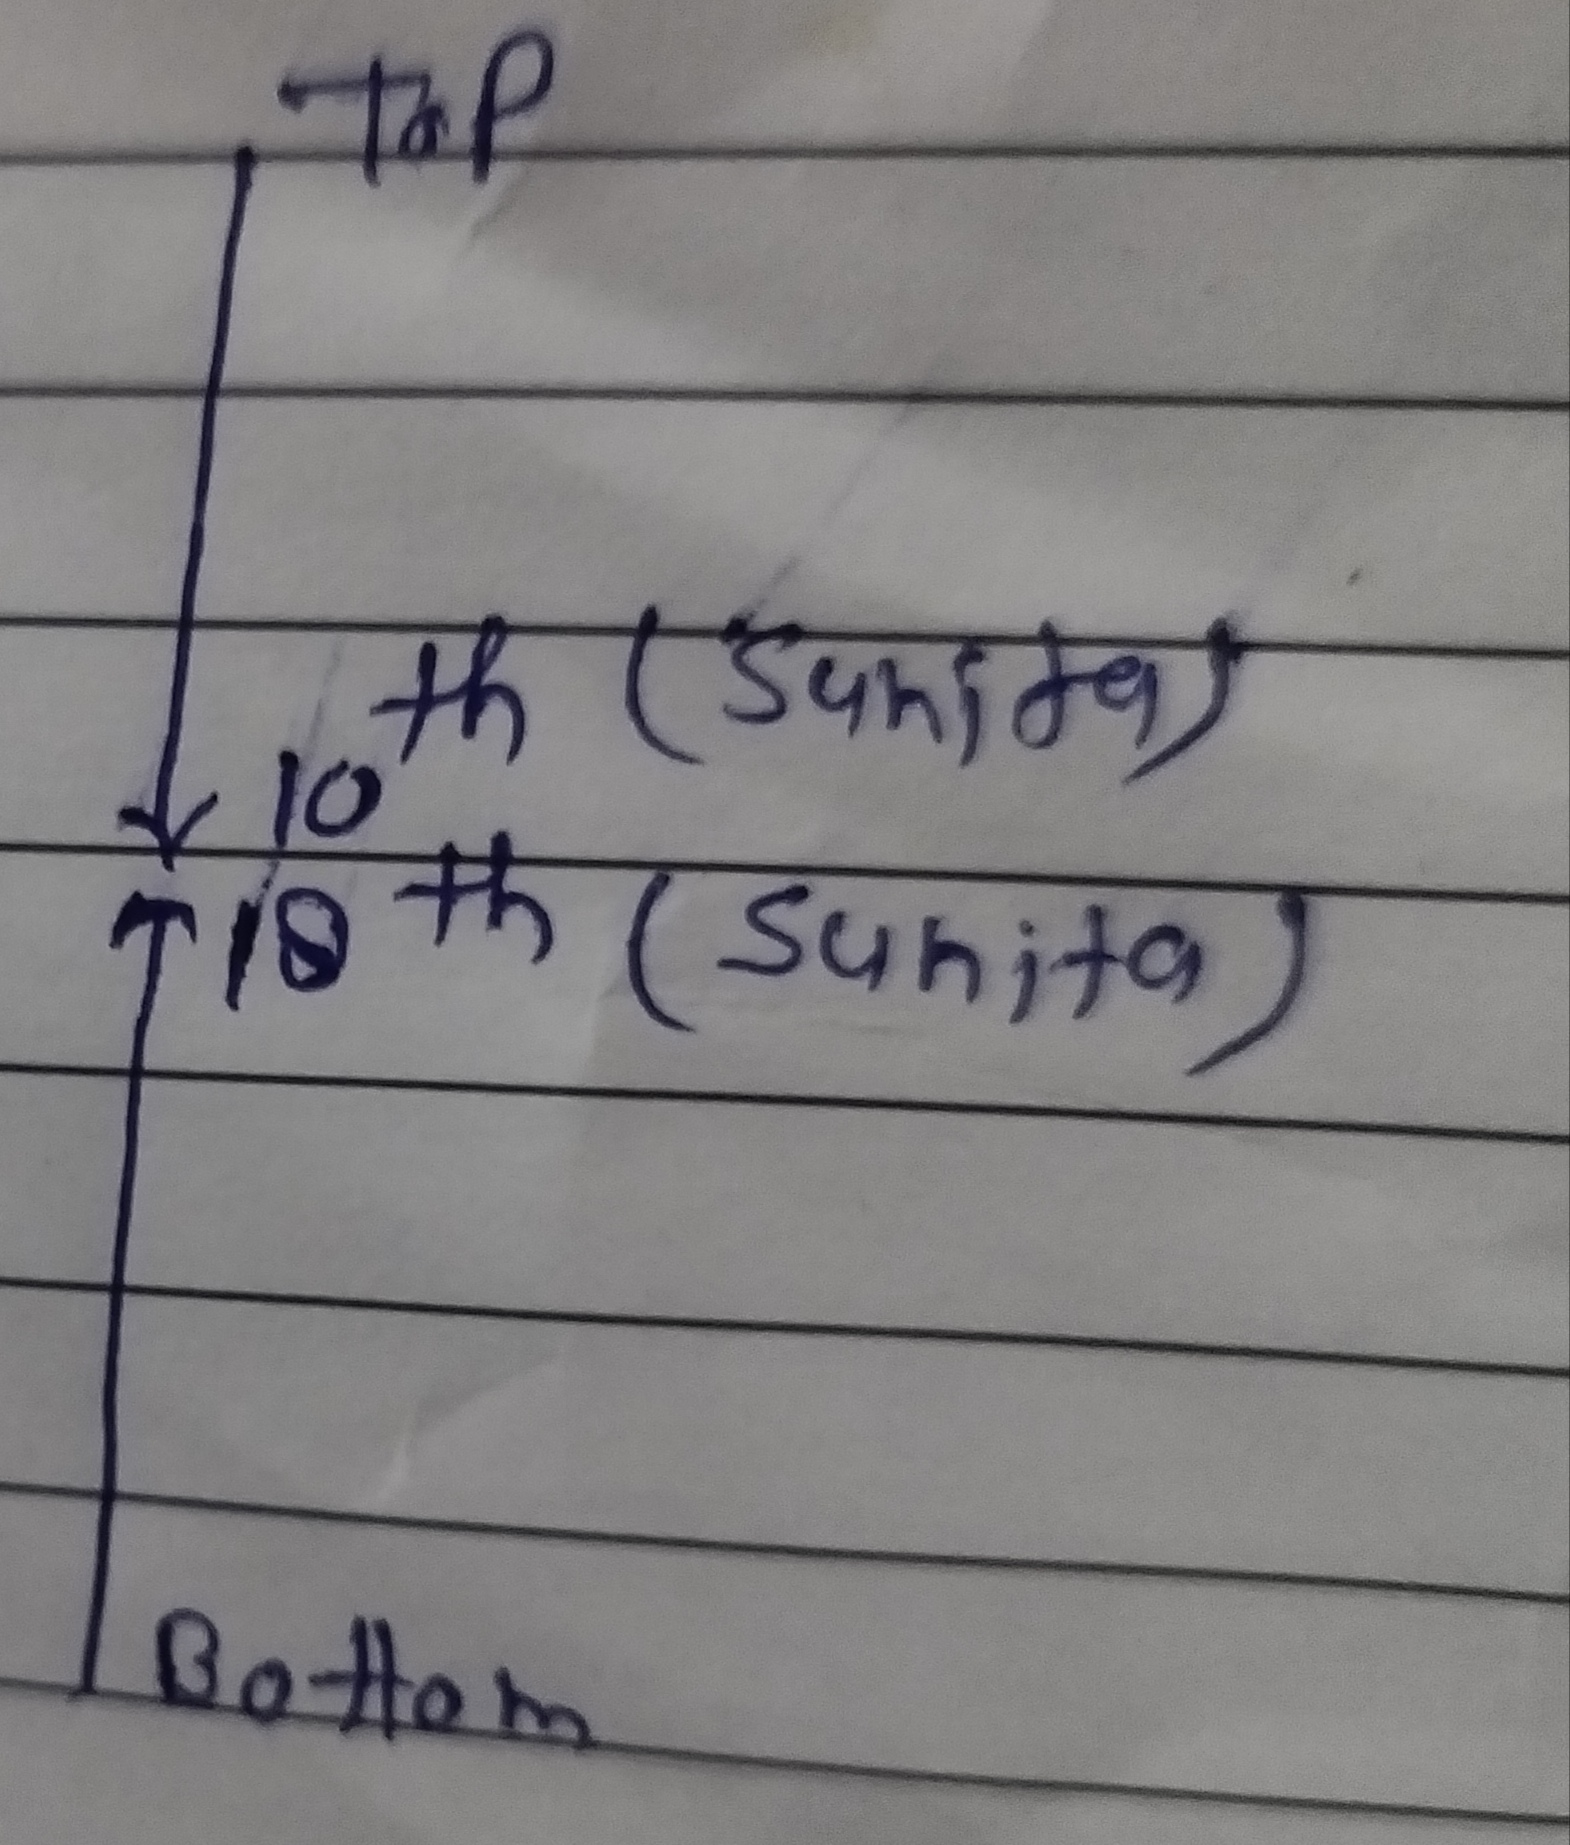 Top
10th (Sunita)
18th (Sunita)
Bottom